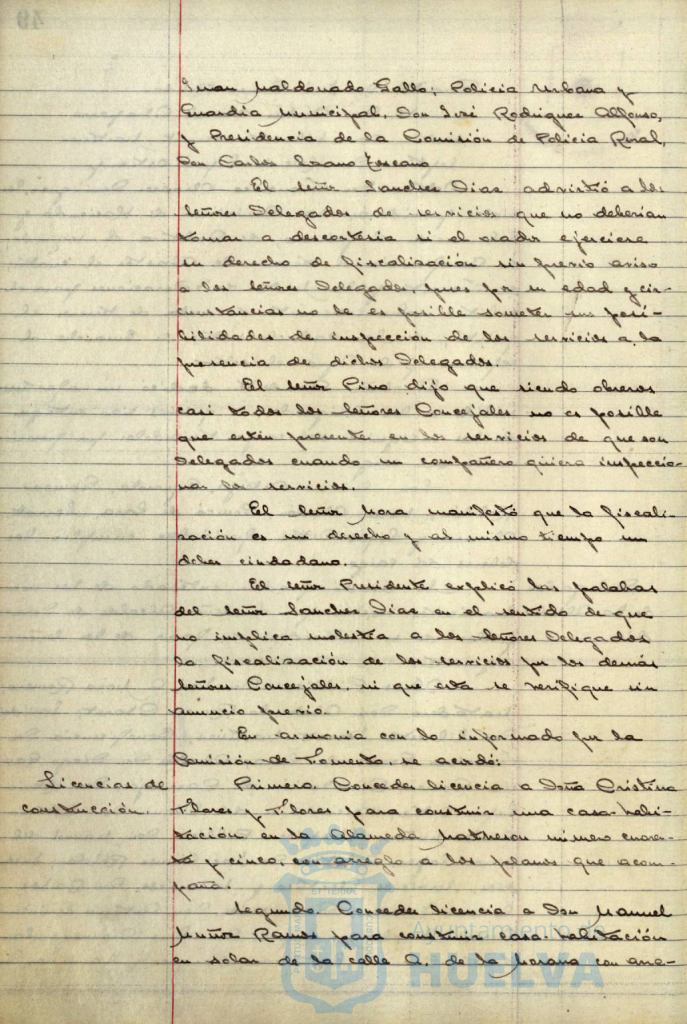 Juan Maldonado Gallo; Policia Urbana y
Guardia Municipal, Don José Rodriguez Alfonso,
y Presidencia de la Comisión de Policia Rural,
Don Carlos Lozano Toscano
El señor Sanchez Diaz advirtió a los
señores Delegados de servicios que no deberian
tomar a descortesia si el orador ejerciere
su derecho de fiscalización sin previo aviso
a los señores Delegados, pues por su edad y cir-
cunstancias no le es posible someter sus posi-
bilidades de inspección de los servicios a la
presencia de dichos Delegados.
El señor Pino dijo que siendo obreros
casi todos los señores Concejales no es posible
que estén presente en los servicios de que son
Delegados cuando un compañero quiera inspeccio-
nar los servicios.
El señor Mora manifestó que la fiscali-
zación es un derecho y al mismo tiempo un
deber ciudadano.
El señor Presidente explicó las palabras
del señor Sanchez Diaz en el sentido de que
no implica molestia a los señores Delegados
la fiscalización de los servicios por los demás
señores Concejales, ni que esta se verifique sin
anuncio previo.
En armonia con lo informado por la
Comisión de Fomento, se acordó:
Licencias de
construcción.
Primero. Conceder licencia a Doña Cristina
Flores y Flores para construir una casa-habi-
tación en la Alameda Matheson número cuaren-
ta y cinco, con arreglo a los planos que acom-
paña.
Segundo. Conceder licencia a Don Manuel
Muñoz Ramos para construir casa-habitación
en solar de la calle A. de la Morana con arre-
Ayuntamiento de
HUELVA